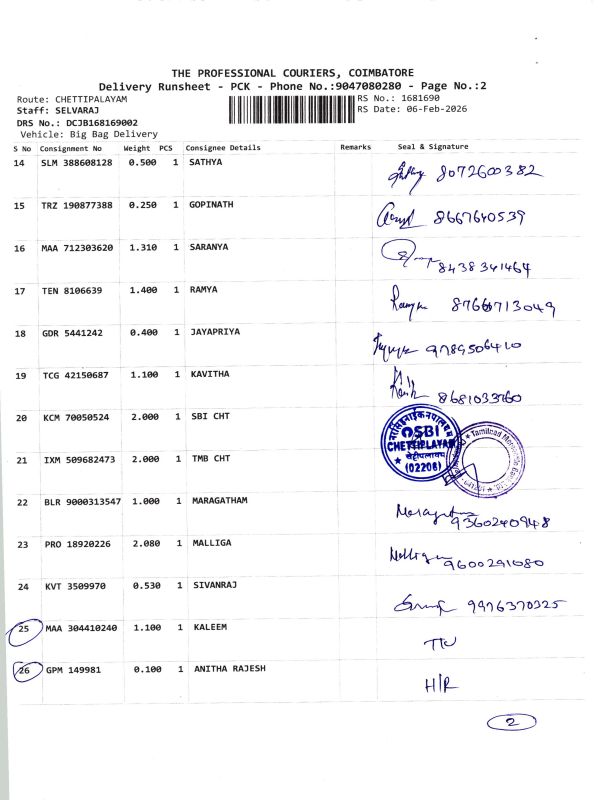 THE PROFESSIONAL COURIERS, COIMBATORE
Delivery Runsheet - PCK - Phone No.:9047080280 - Page No.:2
Route: CHETTIPALAYAM RS No.: 1681690
Staff: SELVARAJ RS Date: 06-Feb-2026
DRS No.: DCJB168169002
Vehicle: Big Bag Delivery
S No Consignment No Weight PCS Consignee Details Remarks Seal & Signature
14 SLM 388608128 0.500 1 SATHYA 8072600382
15 TRZ 190877388 0.250 1 GOPINATH 8667640539
16 MAA 712303620 1.310 1 SARANYA 8438341464
17 TEN 8106639 1.400 1 RAMYA Ramya
18 GDR 5441242 0.400 1 JAYAPRIYA 9789506410
19 TCG 42150687 1.100 1 KAVITHA
20 KCM 70050524 2.000 1 SBI CHT
SBI
CHETTIPALAYAM
(02206)
21 IXM 509682473 2.000 1 TMB CHT
22 BLR 9000313547 1.000 1 MARAGATHAM 9360240948
23 PRO 18920226 2.080 1 MALLIGA 9600291080
24 KVT 3509970 0.530 1 SIVANRAJ 9976370325
25 MAA 304410240 1.100 1 KALEEM
26 GPM 149981 0.100 1 ANITHA RAJESH H/R
2